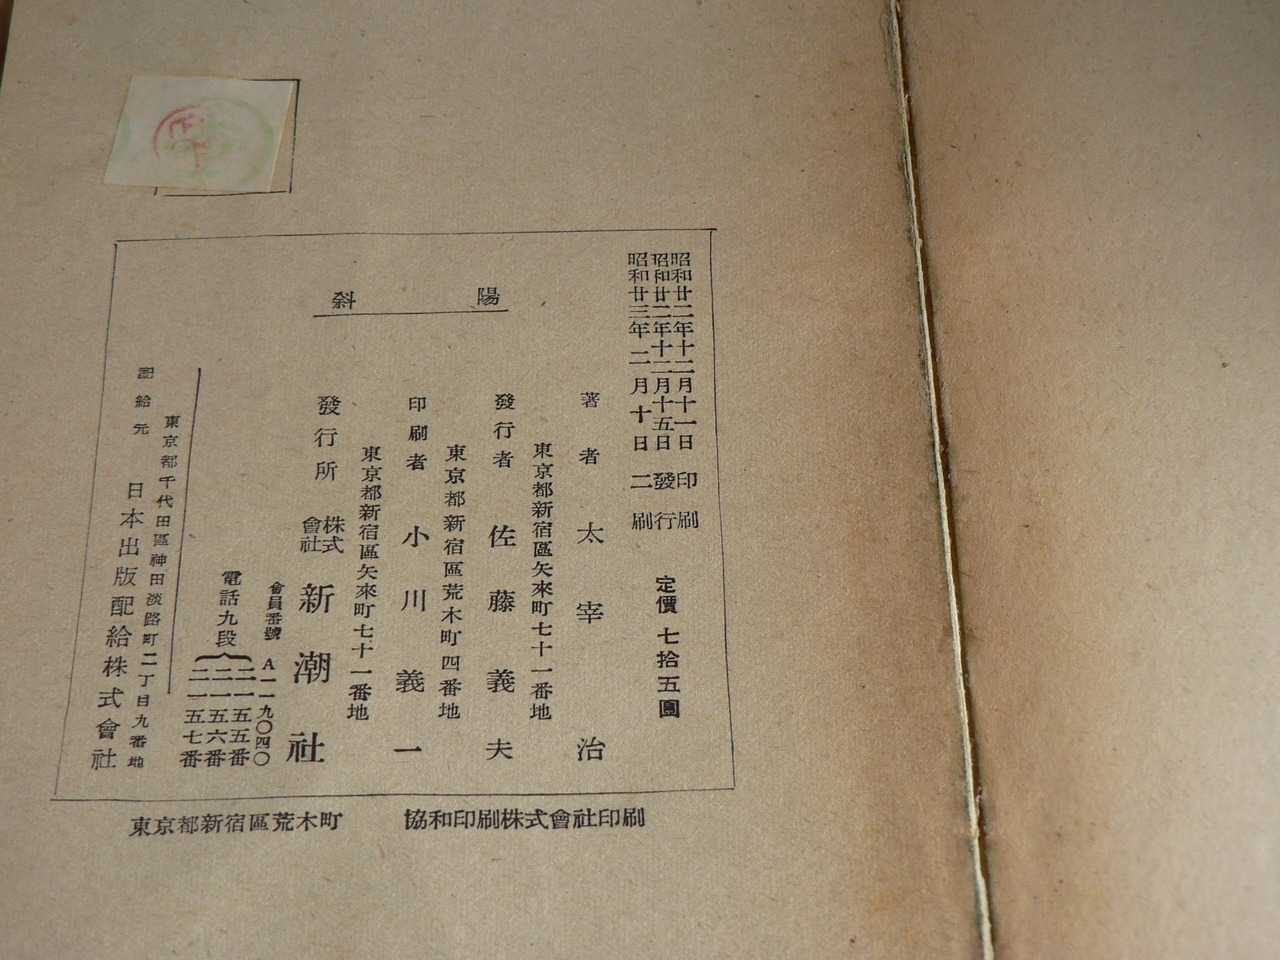 昭和廿二年十二月十一日 印刷
昭和廿二年十二月十五日 發行
昭和廿三年二月十日 二刷
定價 七拾五圓
斜陽
著者 太宰治
東京都新宿區矢來町七十一番地
發行者 佐藤義夫
東京都新宿區荒木町四番地
印刷者 小川義一
東京都新宿區矢來町七十一番地
發行所 株式會社 新潮社
會員番號 A一一九〇四〇
電話九段 二一五五番
二一五六番
二一五七番
東京都千代田區神田淡路町二丁目九番地
配給元 日本出版配給株式會社
東京都新宿區荒木町 協和印刷株式會社印刷